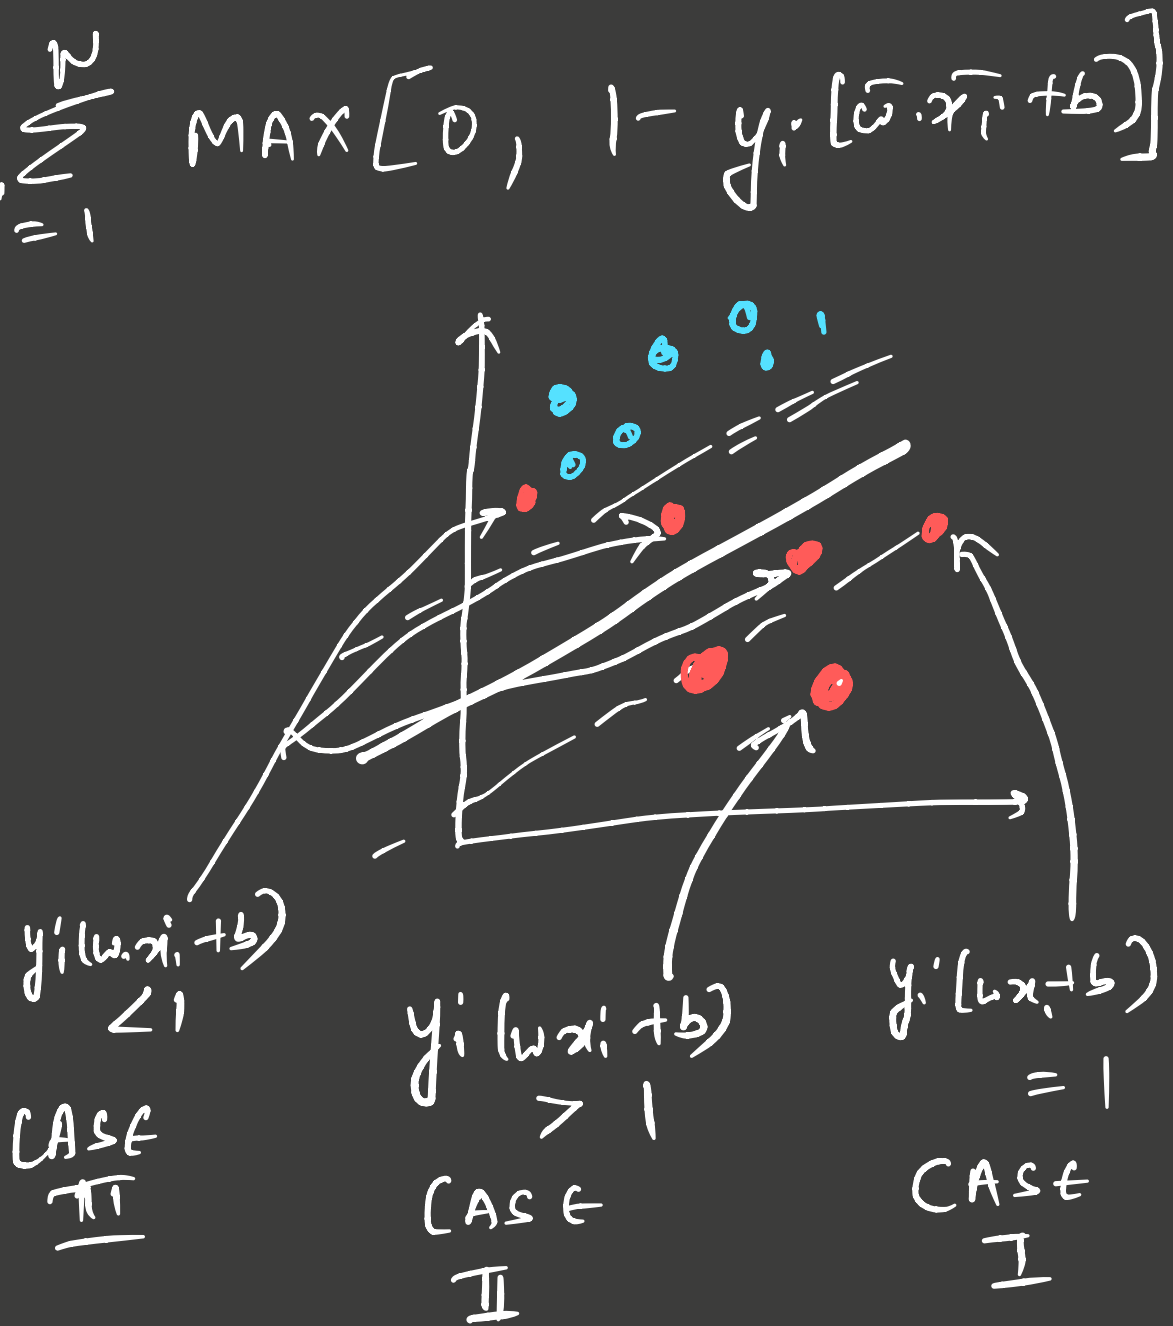 N
∑ MAX[0, 1 - yi [w̅.x̅i + b)]
i=1
yi(w.xi+b)
<1
CASE
III
yi(wxi+b)
> 1
CASE
II
yi(wxi+b)
= 1
CASE
I